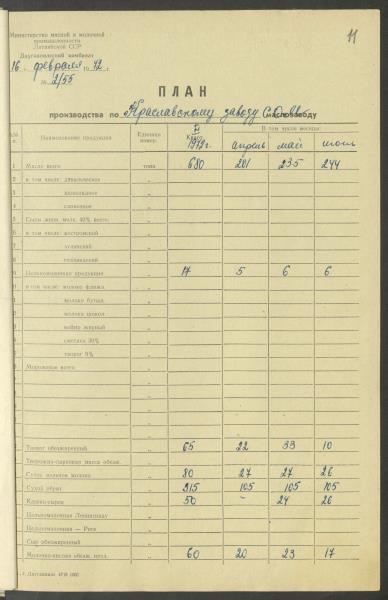 11
Министерство мясной и молочной
промышленности
Латвийской ССР
Даугавпилсский комбинат
16 февраля 1972 г.
№ 2/55
ПЛАН
производства по Краславскому заводу маслозаводу
№№ п. Наименование продукции Единица измер. II 1972г. В том числе месяцы:
апрель май июнь
1 Масло всего тонн 680 201 235 244
2 в том числе: „
3 шоколадное „
4 сливочное „
5 Сыры жирн. 40% всего: „
6 в том числе: костромской „
7 угличский „
8 „
9 Цельномолочная продукция „ 17 5 6 6
0 в том числе: молоко „
молоко бутыл. „
2 молоко цокол. „
3 кефир жирный „
4 сметана 30% „
творог 9% „
Мороженое всего „
Творог обезжиренный „ 65 22 33 10
Творожно-сырковая масса обезж. „
Сухое цельное молоко „ 80 27 27 26
Сухой обрат „ 315 105 105 105
Казеин-сырец „ 50 - 24 26
Цельномолочная Ленинграду „
Цельномолочная — Рига „
Сыр обезжиренный „
Молочно-кислая обезж. прод. „ 60 20 23 17